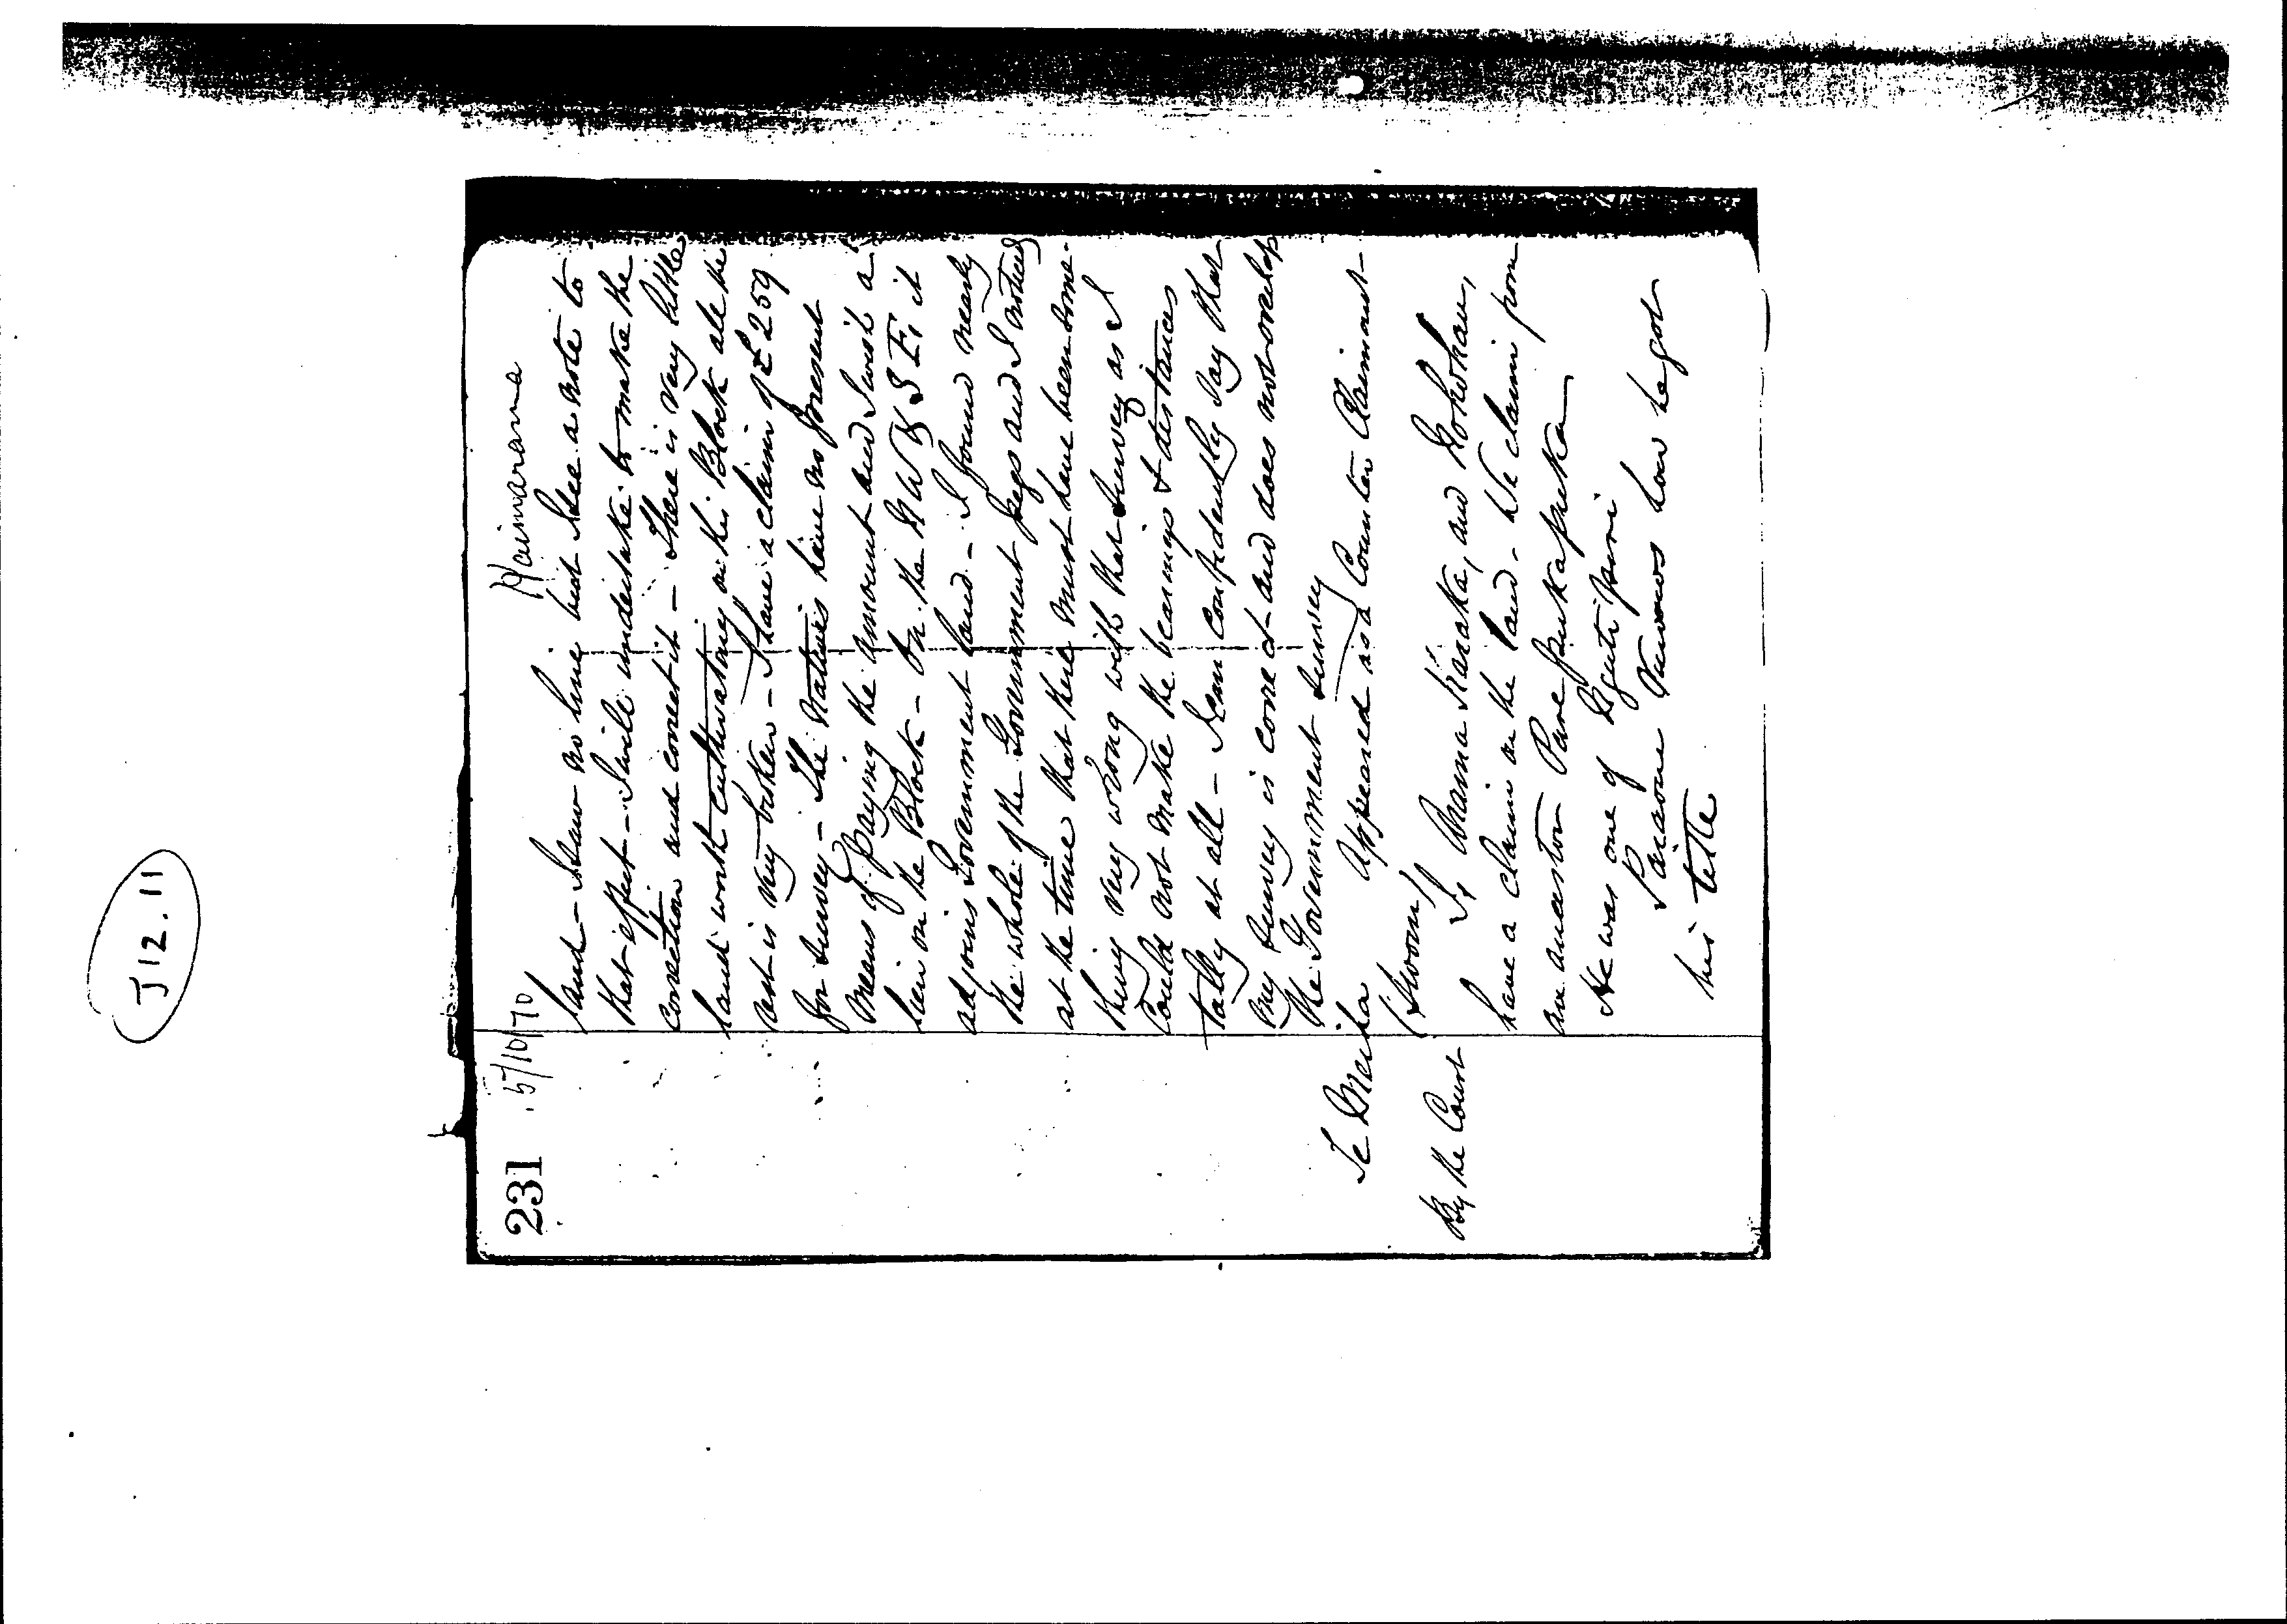 J12.11
231 5/10/70 Waimarama
land - I saw no line but I see a note to
that effect - I will undertake to make the
correction and correct it - There is very little
land worth cultivating on this Block all the
rest is very broken - I have a claim of £259
for survey - The Natives have no present
means of paying the amount and I wish a
lien on the Block - On the N W & S E, it
adjoins Government land - I found nearly
the whole of the Government pegs and I noticed
at the time that there must have been some-
thing very wrong with that survey as I
could not make the bearings & distances
tally at all - I can confidently say that
my survey is correct and does not overlap
the Government survey
Te Meiha appeared as a Counter Claimant -
(Sworn) I,
By the Court have a claim on the land - We claim from
an ancestor
He was one of
knows how he got
his title